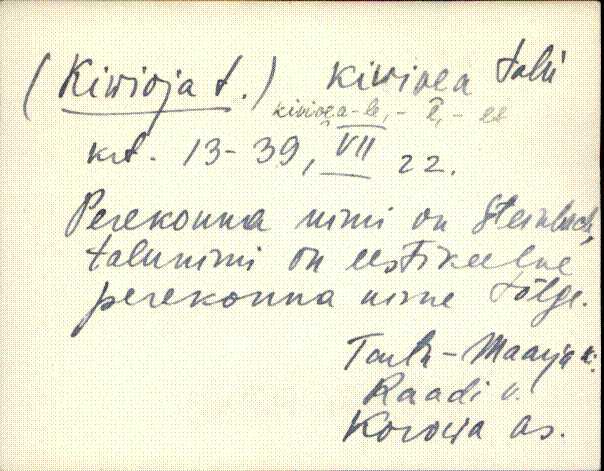 (Kivioja t.) kivioea talu
kivioea-le, - ĕ, - ee
krt. 13-39, VII 22.
Perekonna nimi on Steinbach,
talunimi on eestikeelne
perekonna nime tõlge.
Tartu-Maarja k.
Raadi v.
as.